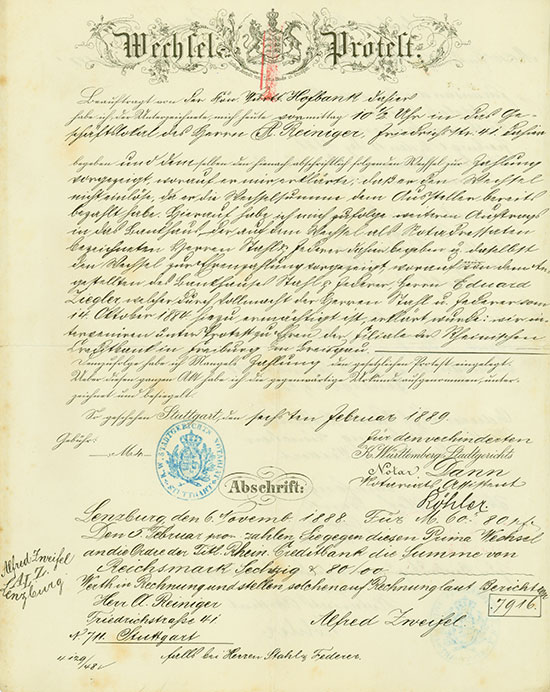 Wechsel-Protest.
Beauftragt von der Kön. Württ. Hofbank dahier
habe ich der Unterzeichnete mich heute vormittag 10½ Uhr in das Ge-
schäftslokal des Herrn A. Reiniger, Friedrichstr. 41 dahier
begeben und demselben den hienach abschriftlich folgenden Wechsel zur Zahlung
vorgezeigt, worauf er mir erklärte: daß er den Wechsel
nicht einlöse, da er die Wechselsumme dem Aussteller bereits
bezahlt habe. Hierauf habe ich mich zufolge weiteren Auftrags
in das Bankhaus der auf dem Wechsel als Notadressaten
bezeichneten Herren Stahl & Federer dahier begeben u. daselbst
den Wechsel zur Ehrenzahlung vorgezeigt, worauf von dem An-
gestellten des Bankhauses Stahl & Federer, Herrn Eduard
Ziegler, welcher durch Vollmacht der Herren Stahl u. Federer vom
14. Oktober 1884 hezu ermächtigt ist, erklärt wurde: wir in-
terveniren unter Protest zu Ehren der Filiale der Rheinischen
Creditbank in Freiburg im Breisgau.
Demzufolge habe ich Mangels Zahlung den gesetzlichen Protest eingelegt.
Ueber diesen ganzen Akt habe ich die gegenwärtige Urkunde aufgenommen, unter-
zeichnet und besiegelt.
So geschehen Stuttgart, den sechsten Februar 1889.
Gebühr:
M. 4.
für den verhinderten
K. Württemberg. Stadtgerichts
Notar Dann
Notariats Assistent
Köhler
K. W. STADTGERICHTS NOTARIAT STUTTGART
Abschrift:
Lenzburg, den 6. Novemb 1888. Für M. 60. 80 pf.
Den 5. Februar zahlen Sie gegen diesen Prima Wechsel
an die Ordre der Titl. Rhein. Creditbank die Summe von
Reichsmark Sechzig & 80/00
Werth in Rechnung und stellen solchen auf Rechnung laut Bericht
Herr A. Reiniger
Friedrichstraße 41
7916.
Alfred Zweifel
N. 714. Stuttgart
falls bei Herren Stahl & Federer.
Alfred Zweifel
Lenzburg